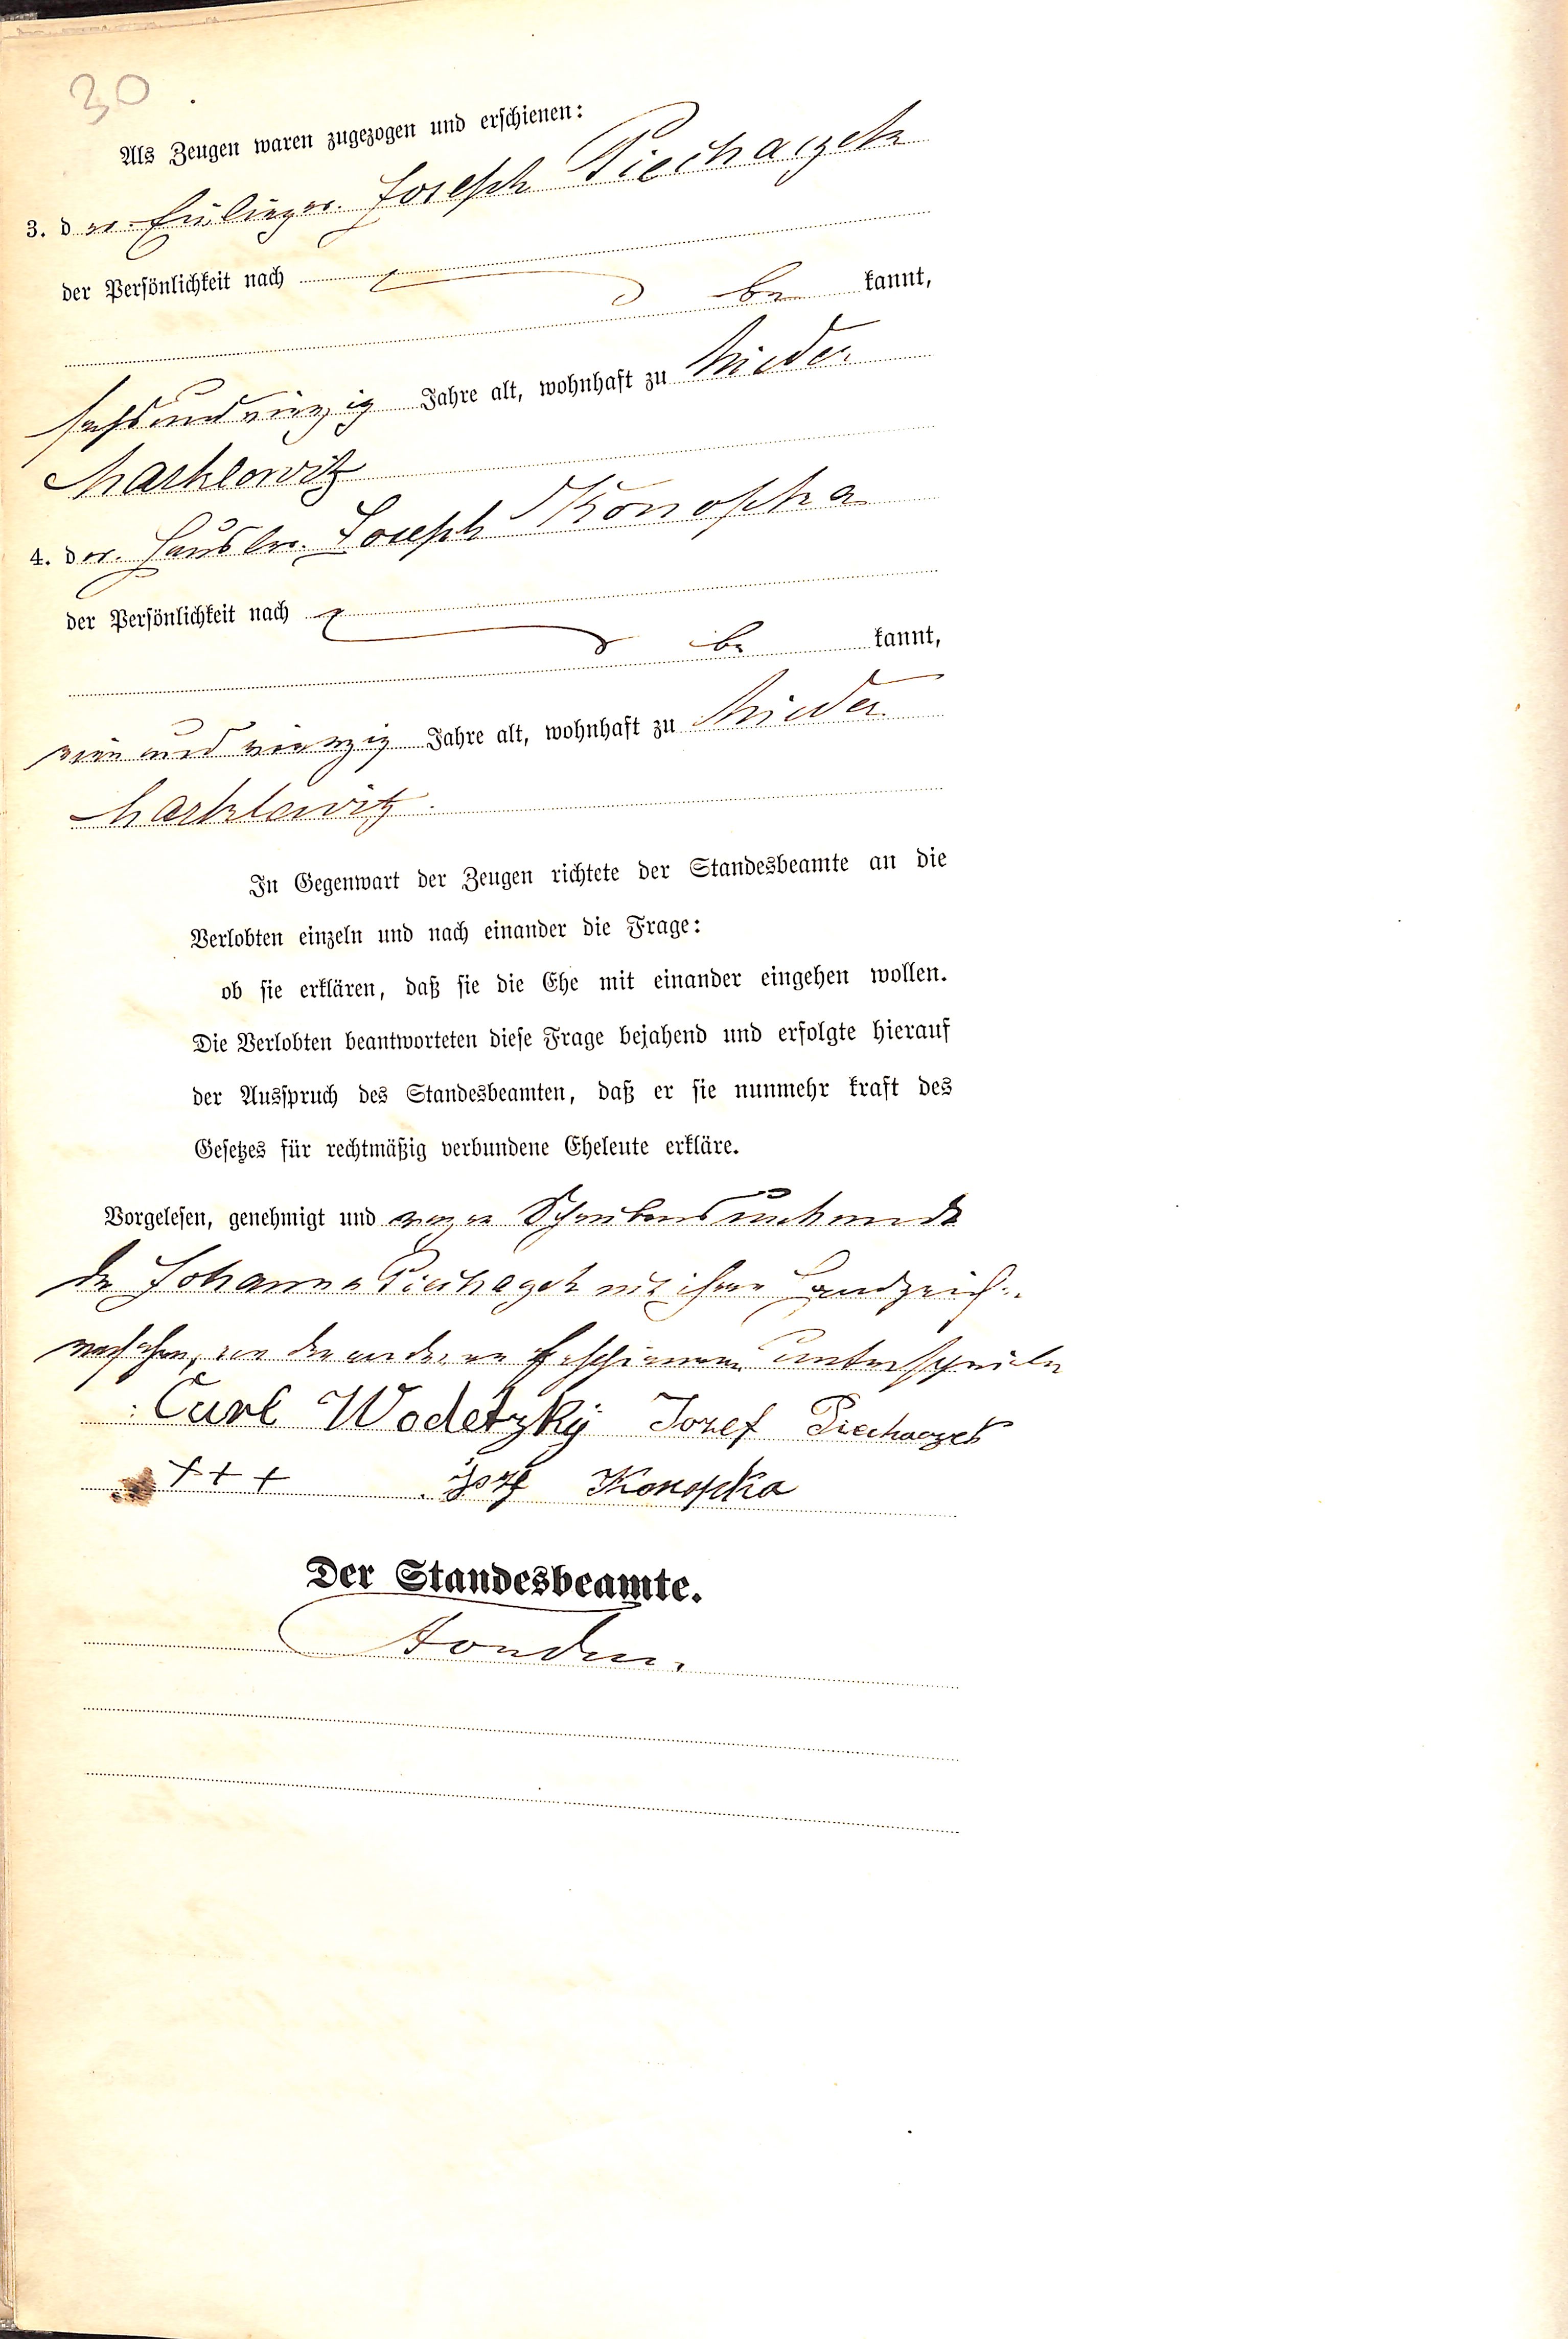 30
Als Zeugen waren zugezogen und erschienen:
3. der Einlieger Joseph Piechaczek
der Persönlichkeit nach
be kannt,
sechsundvierzig Jahre alt, wohnhaft zu Nieder
Marklowitz
4. der Häusler Joseph Konopka
der Persönlichkeit nach
be kannt,
und vierzig Jahre alt, wohnhaft zu Nieder
Marklowitz.
In Gegenwart der Zeugen richtete der Standesbeamte an die
Verlobten einzeln und nach einander die Frage:
ob sie erklären, daß sie die Ehe mit einander eingehen wollen.
Die Verlobten beantworteten diese Frage bejahend und erfolgte hierauf
der Ausspruch des Standesbeamten, daß er sie nunmehr kraft des
Gesetzes für rechtmäßig verbundene Eheleute erkläre.
Vorgelesen, genehmigt und wegen Schreibensunkunde
der Johanna Piechaczek mit ihrem Handzeichen
versehen, von den anderen Erschienenen unterschrieben
Carl Wodetzky Jozef Piechaczek
+++ Jozef Konopka
Der Standesbeamte.